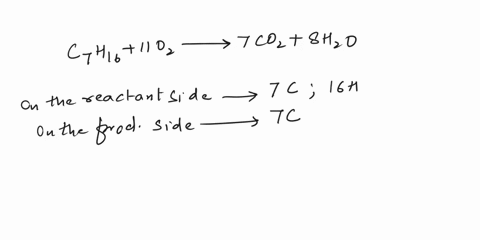 C7H16 + 11O2 ⟶ 7CO2 + 8H2O
On the reactant side ⟶ 7C ; 16H
On the prod. side ⟶ 7C